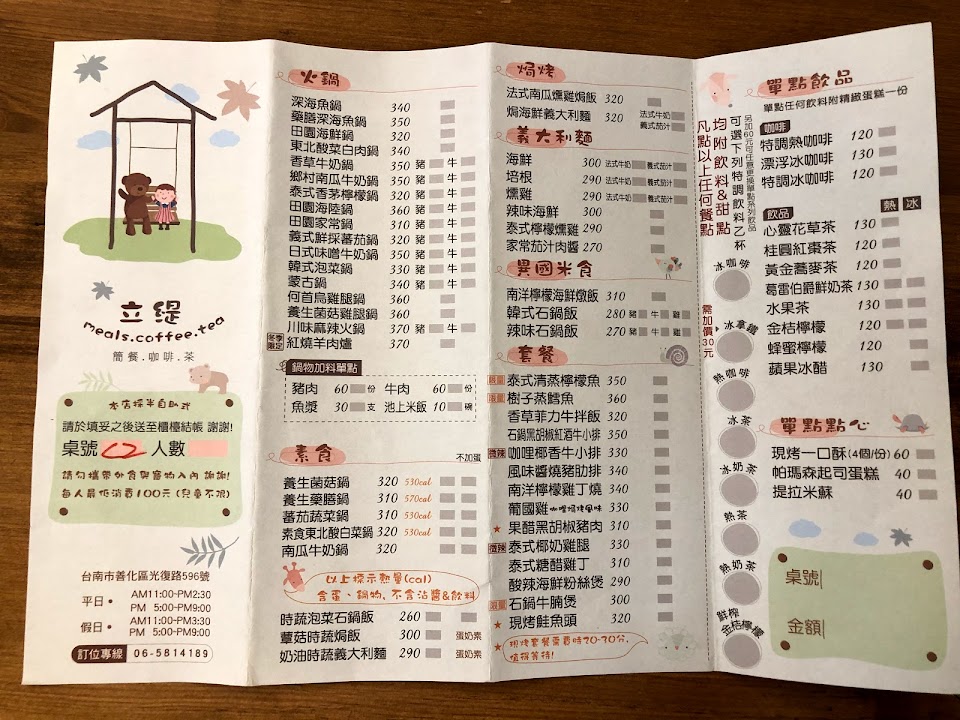 立緹
meals.coffee.tea
簡餐.咖啡.茶
本店採半自助式
請於填妥之後送至櫃檯結帳 謝謝!
桌號 C2 人數
請勿攜帶外食與寵物入內 謝謝!
每人最低消費100元 (兒童不限)
台南市善化區光復路596號
平日. AM11:00-PM2:30
PM 5:00-PM9:00
假日. AM11:00-PM3:30
PM 5:00-PM9:00
訂位專線 06-5814189
火鍋
深海魚鍋 340
藥膳深海魚鍋 350
田園海鮮鍋 320
東北酸菜白肉鍋 340
香草牛奶鍋 350 豬 牛
鄉村南瓜牛奶鍋 350 豬 牛
泰式香茅檸檬鍋 320 豬 牛
田園海陸鍋 360 豬 牛
田園家常鍋 310 豬 牛
義式鮮採蕃茄鍋 320 豬 牛
日式味噌牛奶鍋 350 豬 牛
韓式泡菜鍋 330 豬 牛
蒙古鍋 340 豬 牛
何首烏雞腿鍋 360
養生菌菇雞腿鍋 360
川味麻辣火鍋 370 豬 牛
冬季限定 紅燒羊肉爐 370
鍋物加料單點
豬肉 60 份 牛肉 60 份
魚漿 30 支 池上米飯 10 碗
素食 不加蛋
養生菌菇鍋 320 530cal
養生藥膳鍋 310 570cal
蕃茄蔬菜鍋 310 520cal
素食東北酸白菜鍋 320 530cal
南瓜牛奶鍋 320
以上標示熱量(cal)
含蛋、鍋物,不含沾醬&飲料
時蔬泡菜石鍋飯 260
蕈菇時蔬焗飯 300 蛋奶素
奶油時蔬義大利麵 290 蛋奶素
焗烤
法式南瓜燻雞焗飯 320
焗海鮮義大利麵 320 法式牛奶
義式茄汁
義大利麵
海鮮 300 法式牛奶 義式茄汁
培根 290 法式牛奶 義式茄汁
燻雞 290 法式牛奶 義式茄汁
辣味海鮮 300
泰式檸檬燻雞 290
家常茄汁肉醬 270
異國米食
南洋檸檬海鮮燉飯 310
韓式石鍋飯 280 豬 牛 雞
辣味石鍋飯 270 豬 牛 雞
套餐
限量 泰式清蒸檸檬魚 350
限量 樹子蒸鱈魚 360
香草菲力牛拌飯 320
石鍋黑胡椒紅酒牛小排 350
微辣 咖哩椰香牛小排 330
風味醬燒豬肋排 340
南洋檸檬雞丁燒 340
葡國雞咖哩焗烤風味 330
★ 果醋黑胡椒豬肉 310
微辣 泰式椰奶雞腿 330
泰式糖醋雞丁 310
酸辣海鮮粉絲煲 310
限量 石鍋牛腩煲 300
★ 現烤鮭魚頭 320
★ 現烤套餐需費時20-30分,
值得等待!
凡點以上任何餐點
均附飲料&甜點
可選下列特調飲料乙杯
另加60元可任意更換單點系列飲品
冰咖啡
需加價30元 冰拿鐵
熱咖啡
冰茶
冰奶茶
熱茶
熱奶茶
鮮榨
金桔檸檬
單點飲品
單點任何飲料附精緻蛋糕一份
咖啡
特調熱咖啡 120
漂浮冰咖啡 130
特調冰咖啡 120
飲品 熱 冰
心靈花草茶 130
桂圓紅棗茶 120
黃金蕎麥茶 120
葛雷伯爵鮮奶茶 130
水果茶 130
金桔檸檬 120
蜂蜜檸檬 120
蘋果冰醋 130
單點點心
現烤一口酥(4個/份) 60
帕瑪森起司蛋糕 40
提拉米蘇 40
桌號
金額